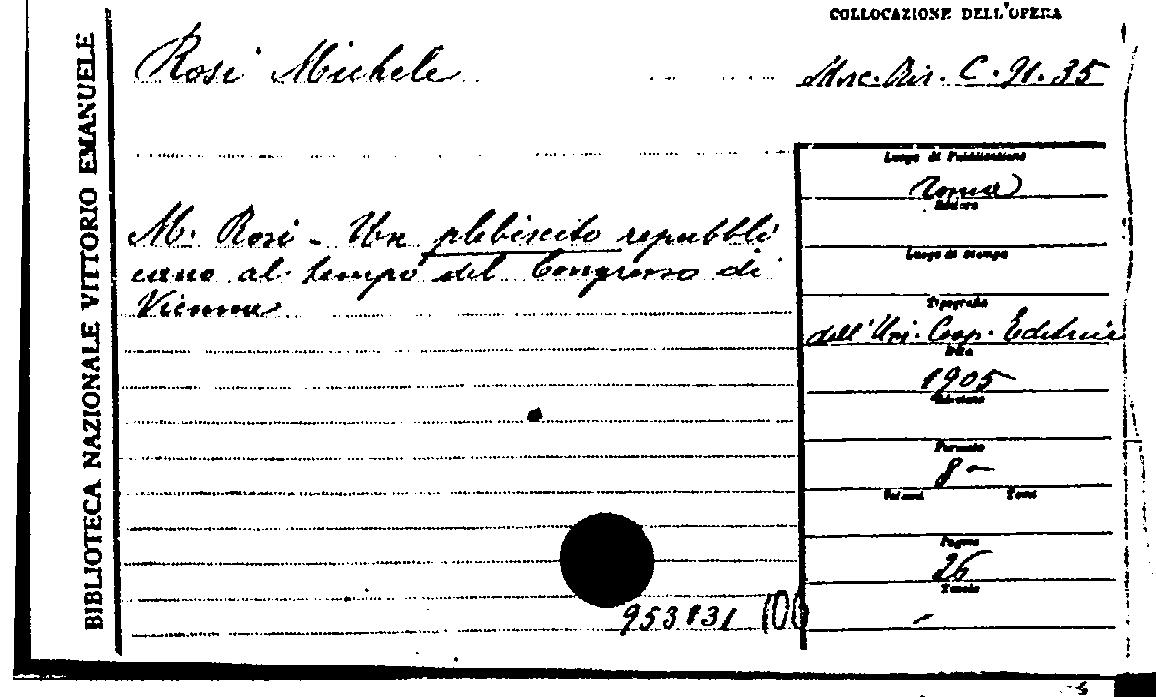 COLLOCAZIONE DELL'OPERA
BIBLIOTECA NAZIONALE VITTORIO EMANUELE
Rosi Michele
Misc. Ris. C. 91.35
M. Rosi - Un plebiscito repubbli
cano al tempo del Congresso di
Vienna
Luogo di Pubblicazione
Roma
Editore
Luogo di stampa
Tipografia
dell'Un. Coop. Editrice
Data
1905
Edizione
Formato
8-
Volumi Tomi
Pagine
26
Tavole
-
953831